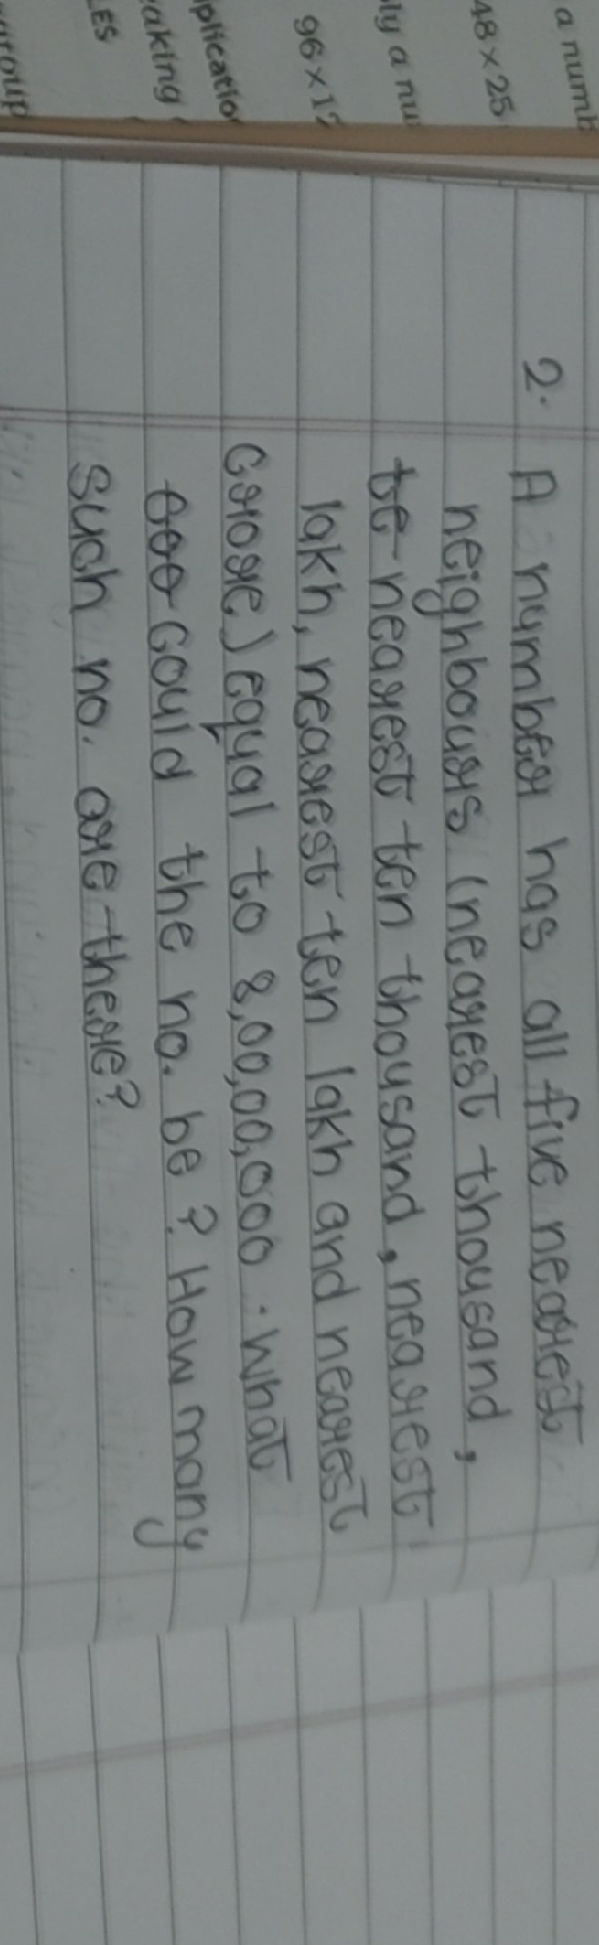 a numb
48 × 25
ply a nu
96 × 12
plicatio
eaking
LES
group
2. A number has all five nearest
neighbours (nearest thousand,
te nearest ten thousand, nearest
lakh, nearest ten lakh and nearest
Crore) equal to 8,00,00,000. What
could the no. be? How many
such no. are there?